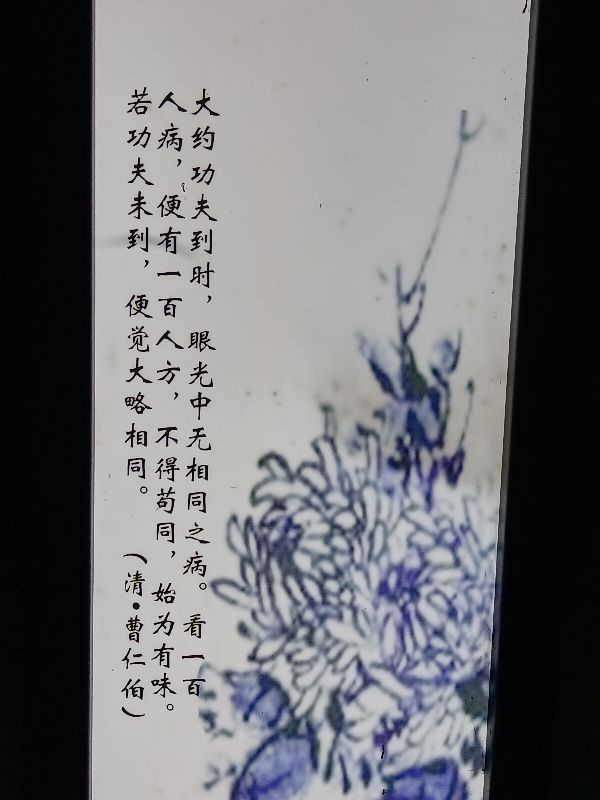 大约功夫到时，眼光中无相同之病。看一百
人病，便有一百人方，不得苟同，始为有味。
若功夫未到，便觉大略相同。（清·曹仁伯）